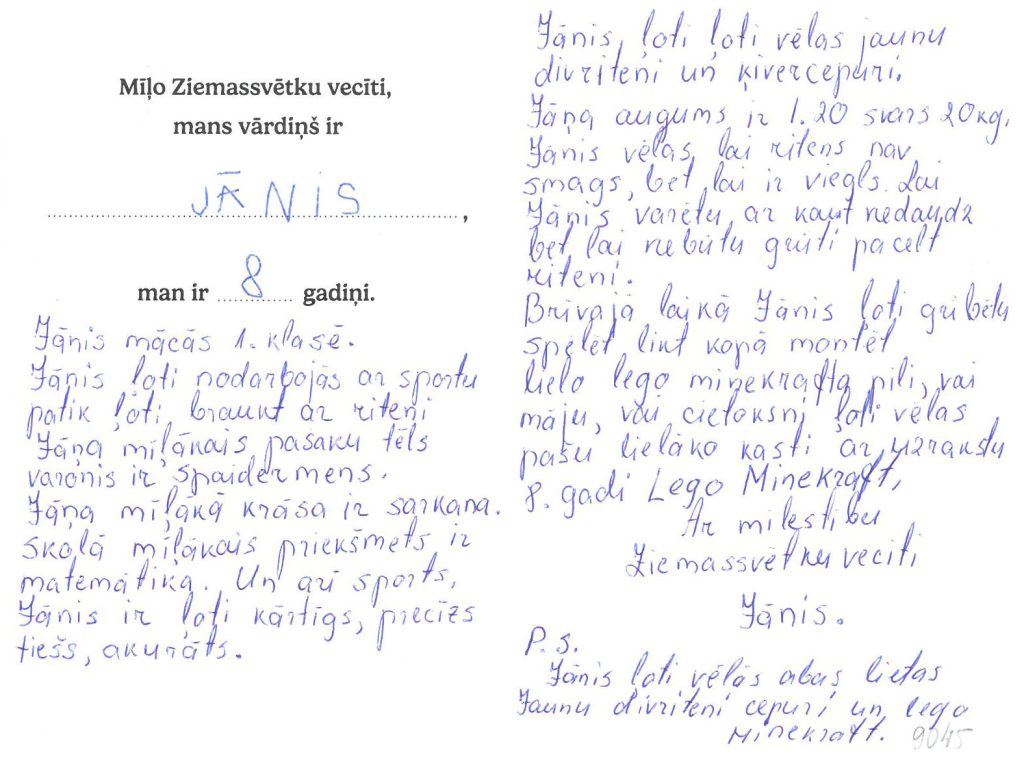 Mīļo Ziemassvētku vecīti,
mans vārdiņš ir
JĀNIS,
man ir 8 gadiņi.
Jānis mācās 1. klasē.
Jānis ļoti nodarbojās ar sportu
patīk ļoti, braukt ar riteni
Jāņa mīļākais pasaku tēls
varonis ir spaidermens.
Jāņa mīļākā krāsa ir sarkana.
skolā mīļākais priekšmets ir
matemātika. Un arī sports,
Jānis ir ļoti kārtīgs, precīzs
tiešs, akurāts.
Jānis, ļoti ļoti vēlas jaunu
divriteņi un ķivercepuri.
Jāņa augums ir 1.20 svars 20kg.
Jānis vēlas, lai ritens nav
smags, bet lai ir viegls. Lai
Jānis varētu, ar kaut nedaudz
bet lai nebūtu grūti pacelt
riteni.
Brīvajā laikā Jānis ļoti gribētu
spēlēt likt kopā montēt
lielo lego minekrafta pili, vai
māju, vai cietoksni ļoti vēlas
pašu lielāko kasti ar uzrakstu
8. gadi Lego Minekraft,
Ar mīlestību
Ziemassvētku vecīti
Jānis.
P.S.
Jānis ļoti vēlās abas lietas
Jaunu divriteni cepuri un lego
Minekraft. 9045